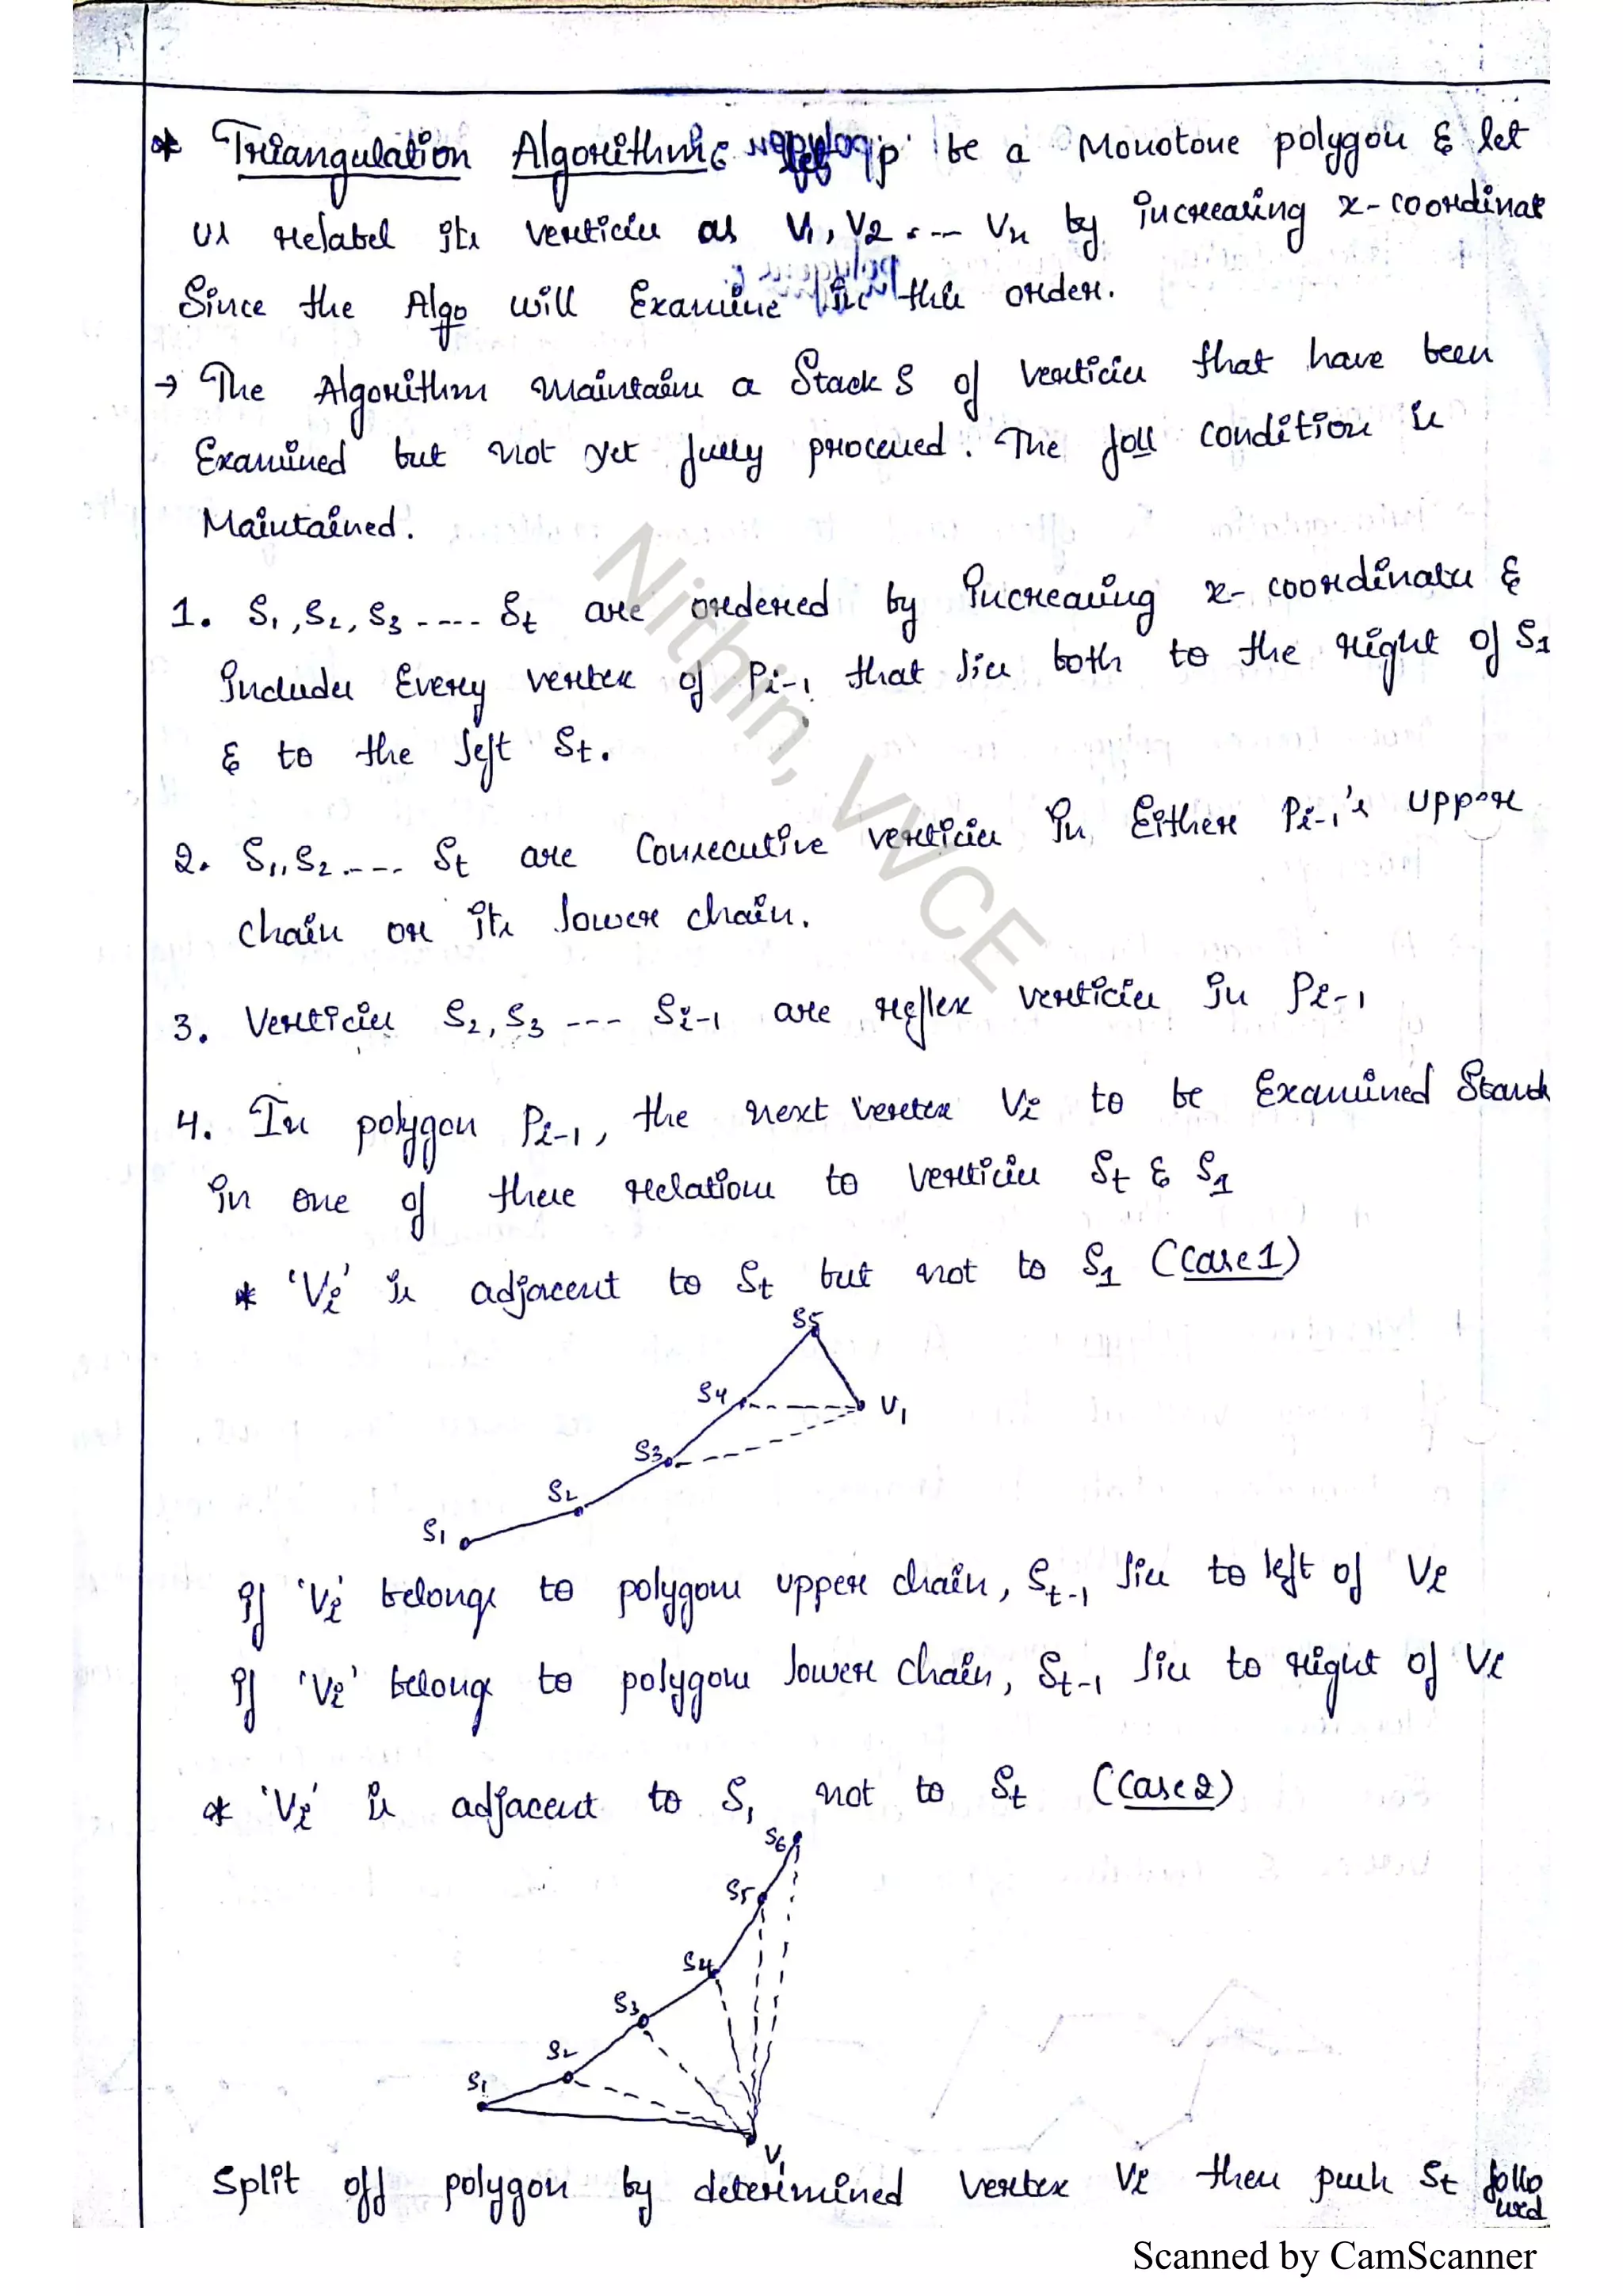 * Triangulation Algorithm: Let p be a Monotone polygon & let
us relabel its verticies as V1, V2 . --- Vn by increasing x-coordinat
Since the Algo will Examine in this order.
→ The Algorithm maintains a Stack S of verticies that have been
Examined but not yet fully processed. The foll condition is
Maintained.
1. S1, S2, S3 ---- St are ordered by increasing x-coordinates &
includes Every vertex of Pi-1 that lies both to the right of S1
& to the left St.
2. S1, S2 ---- St are Consecutive verticies in Either Pi-1's upper
chain or its lower chain.
3. Verticies S2, S3 --- Si-1 are reflex verticies in Pi-1
4. In polygon Pi-1, the next vertex Vi to be Examined Stands
in one of these relations to verticies St & S1
* 'Vi' is adjacent to St but not to S1 (Case 1)
S5
S4
V1
S3
S2
S1
If 'Vi' belongs to polygons upper chain, St-1 lies to left of Vi
If 'Vi' belongs to polygons lower chain, St-1 lies to right of Vi
* 'Vi' is adjacent to S1 not to St (Case 2)
S6
S5
S4
S3
S2
S1
V1
Split off polygon by determined vertex Vi then push St follo
wed
Nithin, VVCE
Scanned by CamScanner